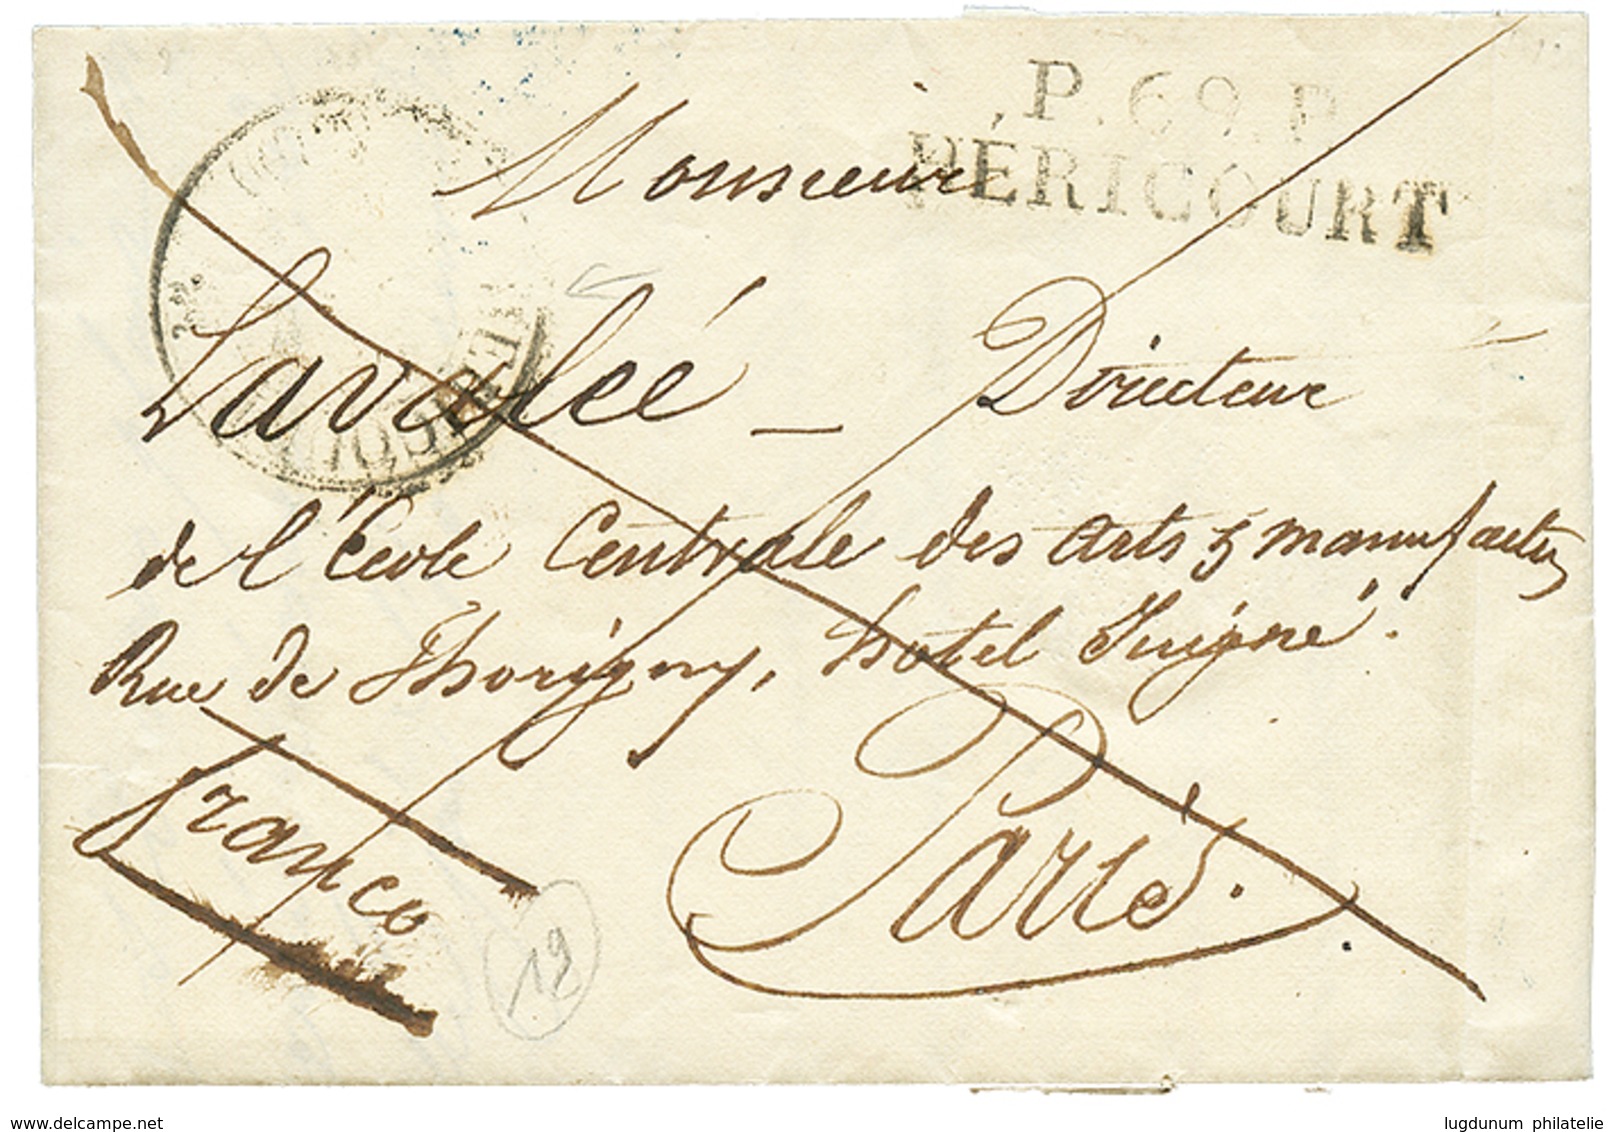 P.69.P
HÉRICOURT
Monsieur
Lavalée – Directeur
de l'École Centrale des Arts & manufactu
Rue de Thorigny, hotel Juigné.
franco
Paris.
19
www.delcampe.net
lugdunum philatelie